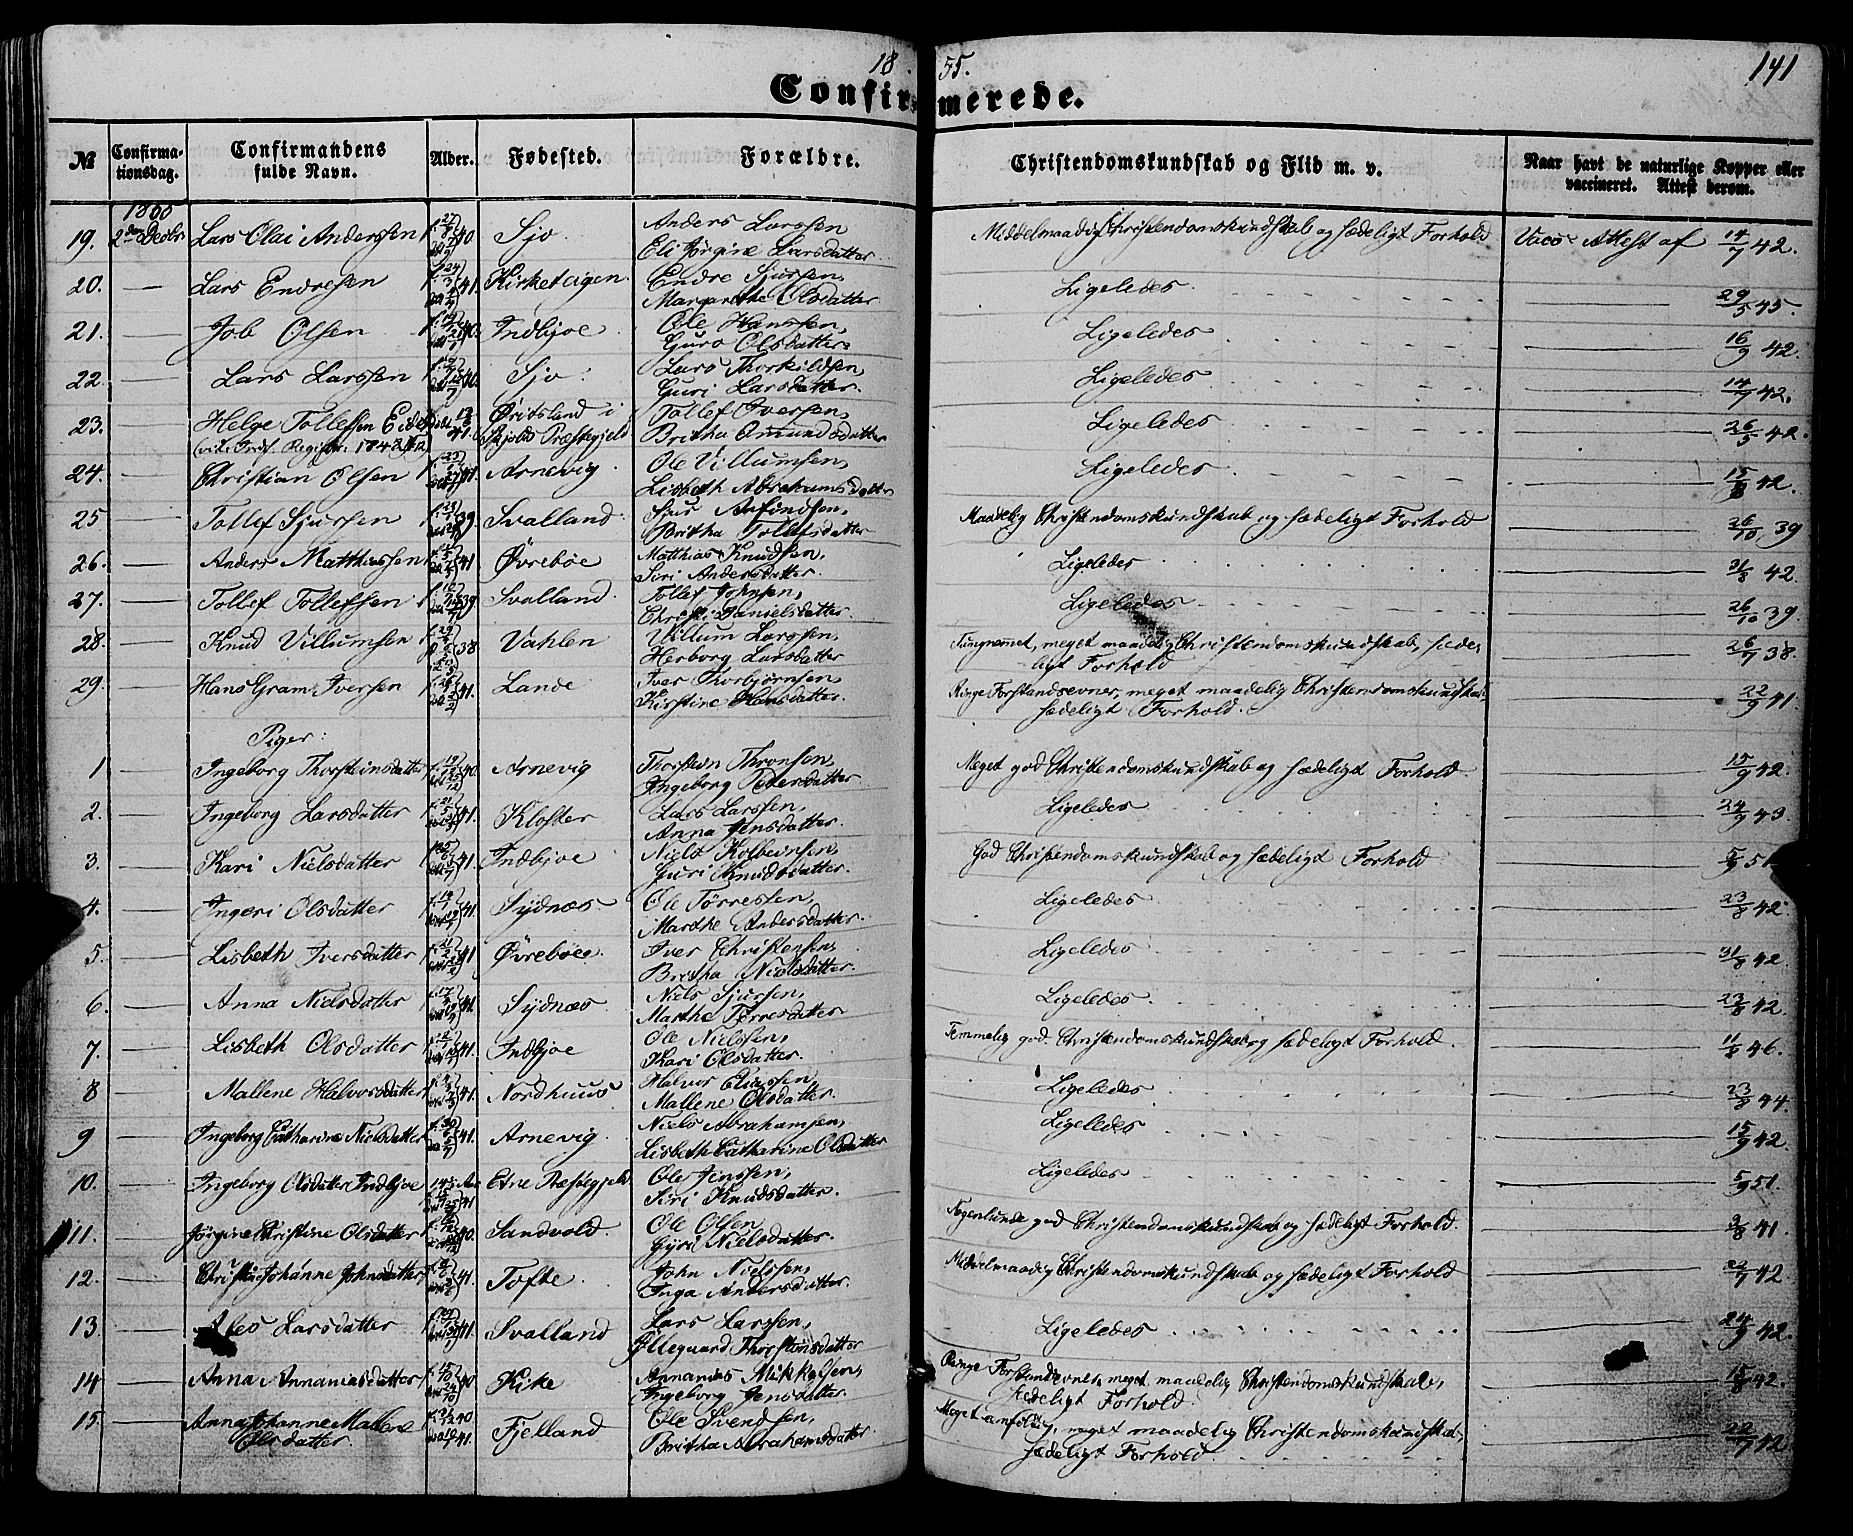 18 55. 141
Confirmerede.
№ Confirmationsdag. Confirmandens fulde Navn. Alder. Fødested. Forældre. Christendomskundskab og Flid m. v. Naar havt de naturlige Kopper eller vaccineret. Attest derom.
19. 2den Decbr Lars Olai Anderssen 40 Sjo Anders Larssen Middelmaadig Christendomskundskab og sædeligt Forhold Vacc. Attest af 14/7 42.
Eli Jørgine Larsdatter
20. — Lars Endresen 41. Kirketeigen. Endre Sjursen, Ligeledes. 29/5 45.
Margarethe Olsdatter
21. — Job Olsen 40. Indbjoe. Ole Hanssen, Ligeledes 16/9 42.
Guro Olsdatter
22. — Lars Larssen 40. Sjo. Lars Thorkildsen, Ligeledes 14/7 42.
Guri Larsdatter.
23. — Helge Tollefsen Eide 41. Øritsland i Tollef Iversen, Ligeledes 26/5 42.
Skjolds Præstegjeld Britha Omundsdatter
24. — Christian Olsen 41. Arnevig Ole Villumsen, Ligeledes 15/8 42.
Lisbeth Abrahamsdatter
25 — Tollef Sjursen 39. Svalland Sjur Anfindsen, Maadelig Christendomskundskab og sædeligt Forhold 26/10 39
Britha Tollefsdatter
26. — Anders Matthiassen 41 Øvrebøe Matthias Knudsen, Ligeledes 31/8 42.
Siri Andersdatter.
27. — Tollef Tollefsen 39. Svalland. Tollef Johnsen, Ligeledes 26/10 39.
Christi Danielsdatter.
28. — Knud Villumsen 38 Vahlen Villum Larssen, Tungnemmet, meget maadelig Christendomskundskab, sæde- 26/7 38.
Herborg Larsdatter ligt Forhold
29. — Hans Gram Iversen 41. Lande Iver Thorbjørnsen, Ringe Forstandsevner, meget maadelig Christendomskundskab, 22/9 41.
Kirstine Hansdatter. sædeligt Forhold.
Piger:
1 — Ingeborg Thorsteinsdatter 40. Arnevig Thorstein Thronsen, Meget god Christendomskundskab og sædeligt Forhold 15/9 42.
Ingeborg Pedersdatter
2. — Ingeborg Larsdatter 41. Kloster Lars Larssen, Ligeledes 24/9 43
Anna Jensdatter.
3. — Kari Nielsdatter 41. Indbjoe Niels Kolbeinsen, God Christendomskundskab og sædeligt Forhold 5/9 51
Guri Knudsdatter.
4. — Ingeri Olsdatter 41. Sydnæs. Ole Tørressen, Ligeledes 23/8 42
Marthe Andersdatter.
5. — Lisbeth Iversdatter 41 Øvrebøe. Iver Christensen, Ligeledes 31/8 42
Britha Nielsdatter.
6 — Anna Nielsdatter 41. Sydnæs Niels Sjursen, Ligeledes. 23/8 42
Martha Tørresdatter
7. — Lisbeth Olsdatter 41. Indbjoe Ole Nielssen, Temmelig god Christendomskundskab og sædeligt Forhold. 11/8 46.
Kari Olsdatter.
8 — Mallene Halvorsdatter 41. Nordhuus Halvor Eliassen, Ligeledes 23/8 44.
Mallene Olsdatter.
9 — Ingeborg Catharine Nielsdatter 41. Arnevig. Niels Abrahamsen, Ligeledes 15/9 42
Lisbeth Catharine Olsdatter
10. — Ingeborg Olsdatter Indbjoe 41 Etne Præstegjeld Ole Jenssen, Ligeledes 5/9 51.
Siri Knudsdatter.
11. — Jørgine Christine Olsdatter 40. Sandvold. Ole Olsen, Nogenlunde god Christendomskundskab og sædeligt Forhold. 3/8 41.
Gyri Nielsdatter.
12. — Christine Johanne Johnsdatter 41. Tofte. John Nielssen, Middelmaadig Christendomskundskab og sædeligt Forhold 22/7 42
Inga Andersdatter
13. — Larsdatter 41. Svalland Lars Larssen, Ligeledes 24/9 42.
Ollegaard Thorsteinsdatter
14 — Anna Annaniasdatter 40 Kike Annanias Mikkelsen, Ringe Forstandsevner, meget maadelig Christendomskundskab, 15/8 42.
Ingeborg Jensdatter. sædeligt Forhold.
15. — Anna Johanne Mallene 40 Fjelland Ole Svendsen, Meget enfoldig, meget maadelig Christendomskundskab, 22/7 42
Olsdatter. 41. Britha Abrahamsdatter sædeligt Forhold.